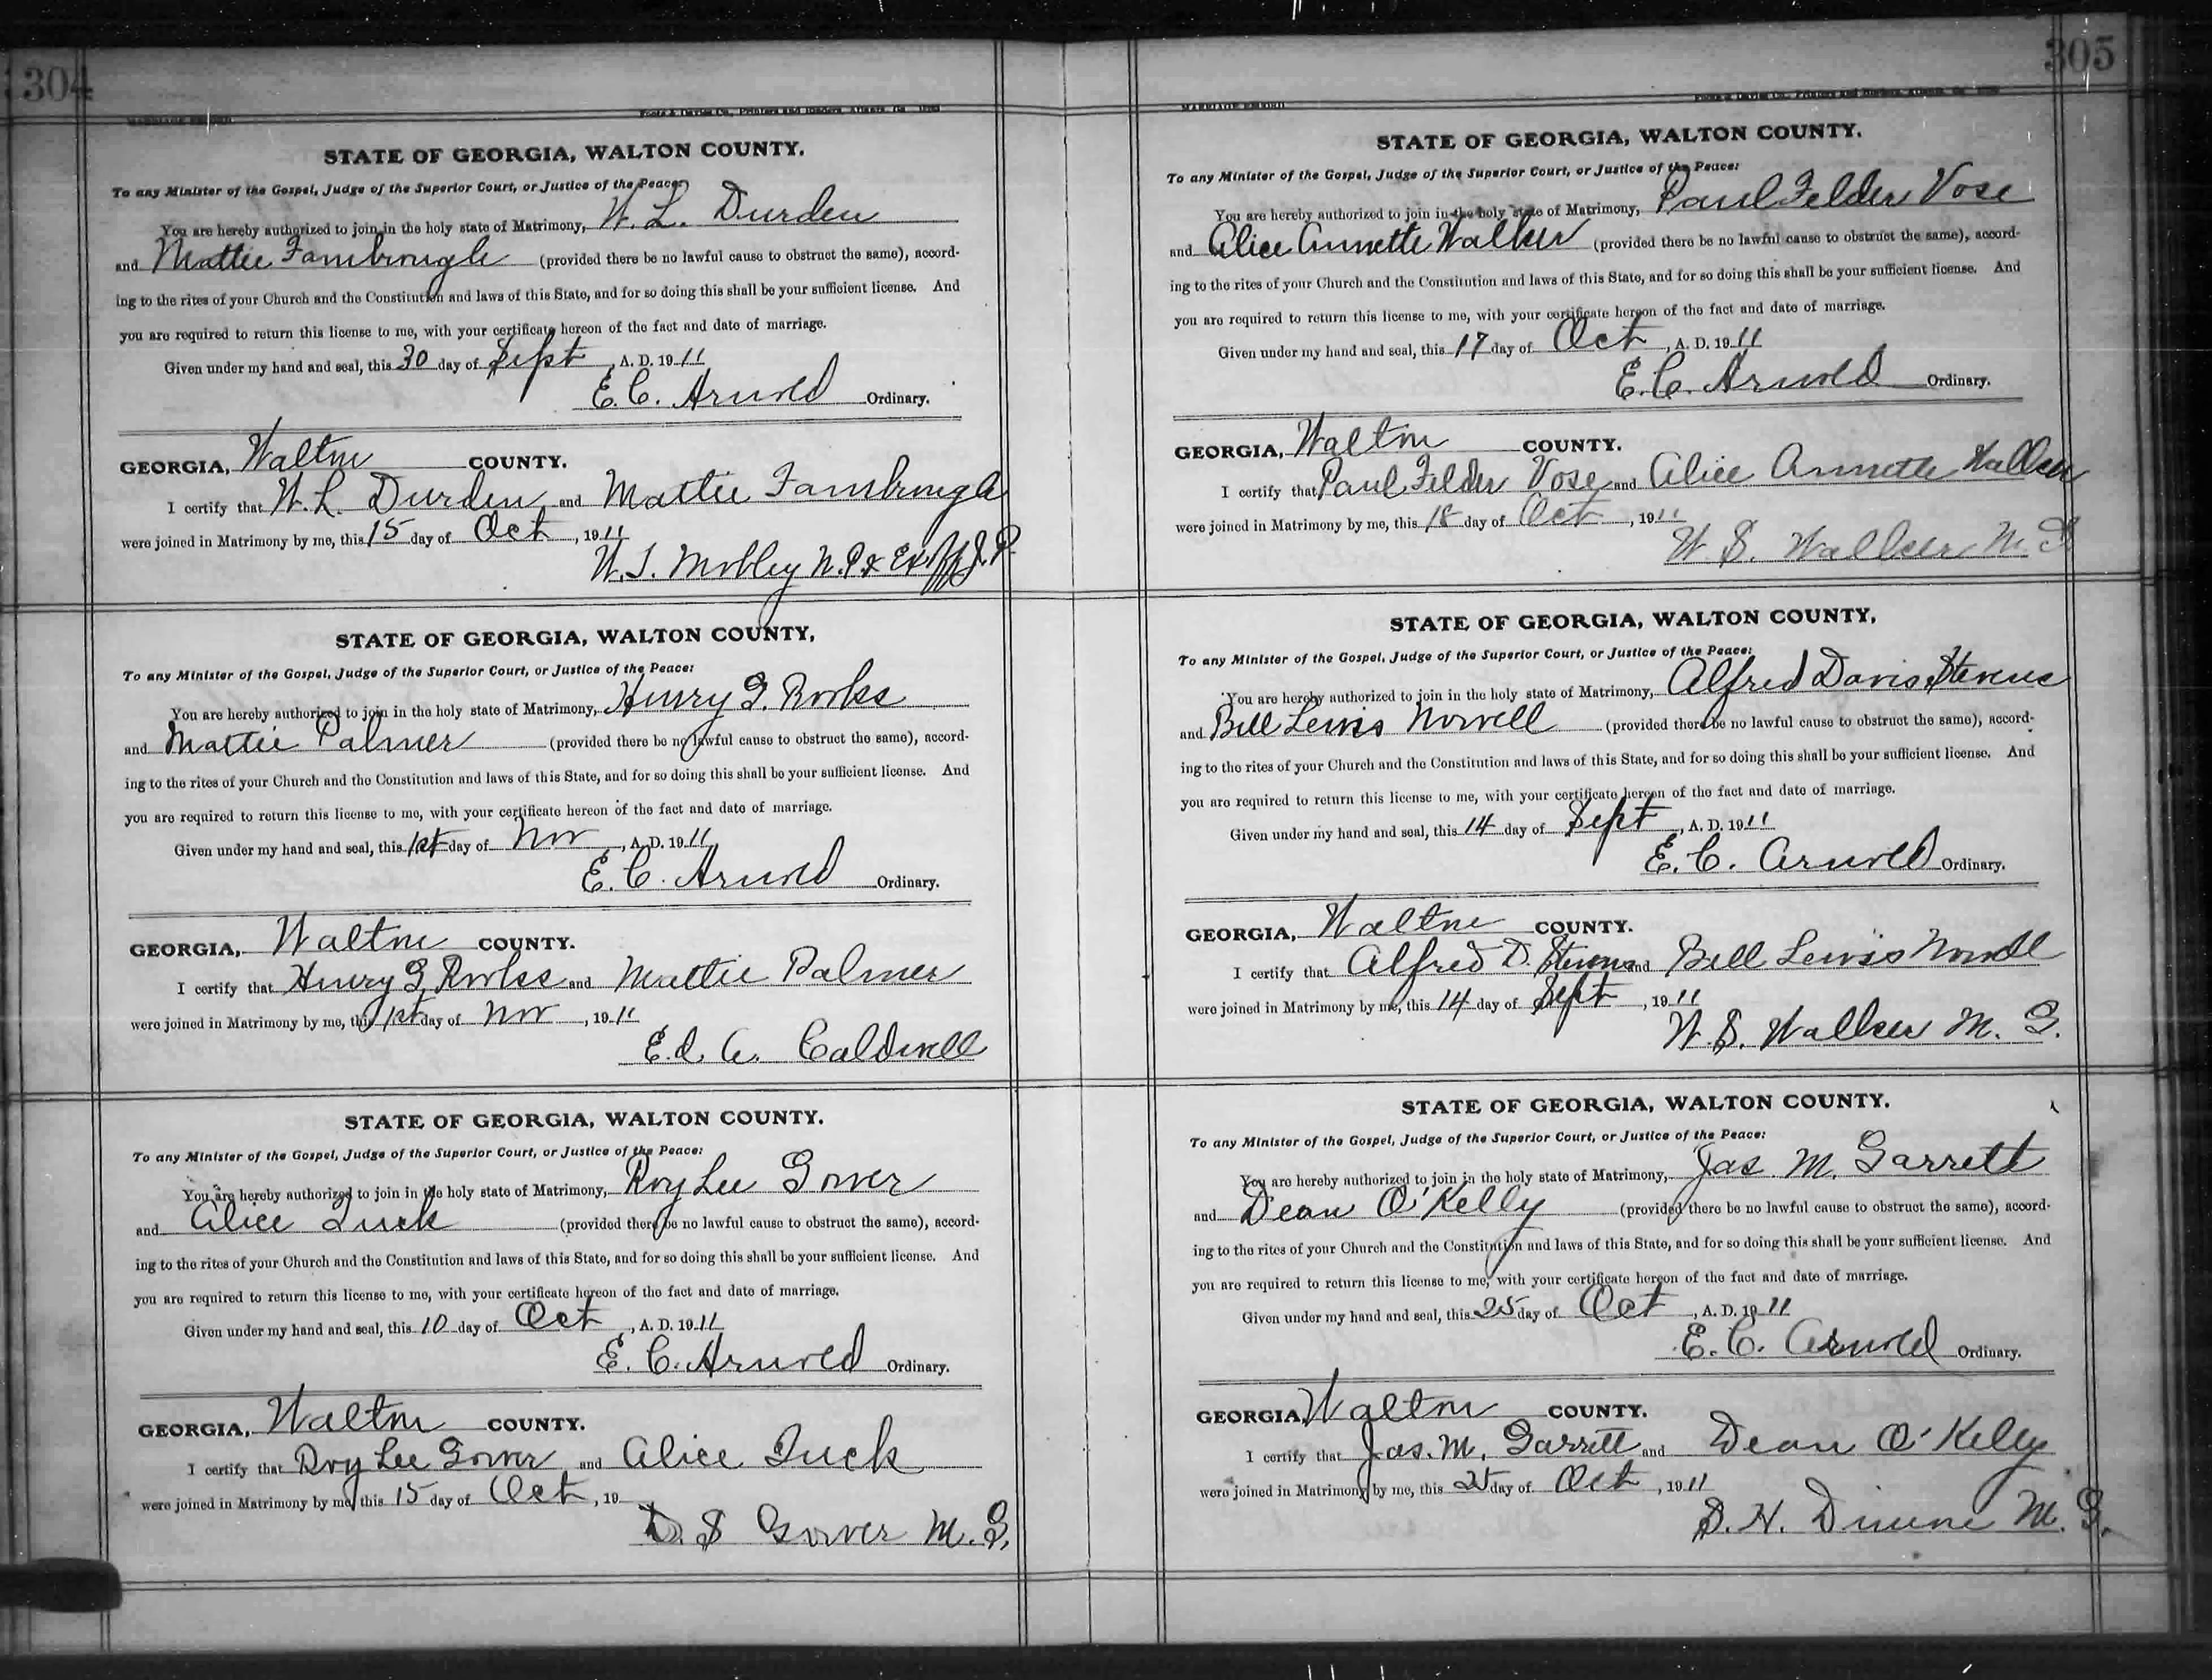 304
MARRIAGE RECORD
Foote & Davies Co., Printers and Binders, Atlanta, Ga.
STATE OF GEORGIA, WALTON COUNTY.
To any Minister of the Gospel, Judge of the Superior Court, or Justice of the Peace:
You are hereby authorized to join in the holy state of Matrimony, W. L. Durden
and Mattie Fambrough (provided there be no lawful cause to obstruct the same), accord-
ing to the rites of your Church and the Constitution and laws of this State, and for so doing this shall be your sufficient license. And
you are required to return this license to me, with your certificate hereon of the fact and date of marriage.
Given under my hand and seal, this 30 day of Sept, A. D. 1911
E. C. Arnold Ordinary.
GEORGIA, Walton COUNTY.
I certify that W. L. Durden and Mattie Fambrough
were joined in Matrimony by me, this 15 day of Oct, 1911
W. J. Mobley N. P. & Ex Off J. P.
STATE OF GEORGIA, WALTON COUNTY,
To any Minister of the Gospel, Judge of the Superior Court, or Justice of the Peace:
You are hereby authorized to join in the holy state of Matrimony, Henry G. Rooks
and Mattie Palmer (provided there be no lawful cause to obstruct the same), accord-
ing to the rites of your Church and the Constitution and laws of this State, and for so doing this shall be your sufficient license. And
you are required to return this license to me, with your certificate hereon of the fact and date of marriage.
Given under my hand and seal, this 1st day of Nov, A. D. 1911
E. C. Arnold Ordinary.
GEORGIA, Walton COUNTY.
I certify that Henry G. Rooks and Mattie Palmer
were joined in Matrimony by me, this 1st day of Nov, 1911
Ed. A. Caldwell
STATE OF GEORGIA, WALTON COUNTY.
To any Minister of the Gospel, Judge of the Superior Court, or Justice of the Peace:
You are hereby authorized to join in the holy state of Matrimony, Roy Lee Gower
and Alice Tuck (provided there be no lawful cause to obstruct the same), accord-
ing to the rites of your Church and the Constitution and laws of this State, and for so doing this shall be your sufficient license. And
you are required to return this license to me, with your certificate hereon of the fact and date of marriage.
Given under my hand and seal, this 10 day of Oct, A. D. 1911
E. C. Arnold Ordinary.
GEORGIA, Walton COUNTY.
I certify that Roy Lee Gower and Alice Tuck
were joined in Matrimony by me, this 15 day of Oct, 19
D. S Gower M. G.
305
MARRIAGE RECORD
Foote & Davies Co., Printers and Binders, Atlanta, Ga.
STATE OF GEORGIA, WALTON COUNTY.
To any Minister of the Gospel, Judge of the Superior Court, or Justice of the Peace:
You are hereby authorized to join in the holy state of Matrimony, Paul Felder Vose
and Alice Annette Walker (provided there be no lawful cause to obstruct the same), accord-
ing to the rites of your Church and the Constitution and laws of this State, and for so doing this shall be your sufficient license. And
you are required to return this license to me, with your certificate hereon of the fact and date of marriage.
Given under my hand and seal, this 17 day of Oct, A. D. 1911
E. C. Arnold Ordinary.
GEORGIA, Walton COUNTY.
I certify that Paul Felder Vose and Alice Annette Walker
were joined in Matrimony by me, this 18 day of Oct, 1911
W. S. Walker M. G.
STATE OF GEORGIA, WALTON COUNTY,
To any Minister of the Gospel, Judge of the Superior Court, or Justice of the Peace:
You are hereby authorized to join in the holy state of Matrimony, Alfred Davis Stevens
and Bell Lewis Nowell (provided there be no lawful cause to obstruct the same), accord-
ing to the rites of your Church and the Constitution and laws of this State, and for so doing this shall be your sufficient license. And
you are required to return this license to me, with your certificate hereon of the fact and date of marriage.
Given under my hand and seal, this 14 day of Sept, A. D. 1911
E. C. Arnold Ordinary.
GEORGIA, Walton COUNTY.
I certify that Alfred D. Stevens and Bell Lewis Nowell
were joined in Matrimony by me, this 14 day of Sept, 1911
W. S. Walker M. G.
STATE OF GEORGIA, WALTON COUNTY.
To any Minister of the Gospel, Judge of the Superior Court, or Justice of the Peace:
You are hereby authorized to join in the holy state of Matrimony, Jas M. Garrett
and Dean O'Kelly (provided there be no lawful cause to obstruct the same), accord-
ing to the rites of your Church and the Constitution and laws of this State, and for so doing this shall be your sufficient license. And
you are required to return this license to me, with your certificate hereon of the fact and date of marriage.
Given under my hand and seal, this 25 day of Oct, A. D. 1911
E. C. Arnold Ordinary.
GEORGIA, Walton COUNTY.
I certify that Jas. M. Garrett and Dean O'Kelly
were joined in Matrimony by me, this 25 day of Oct, 1911
S. H. M. G.